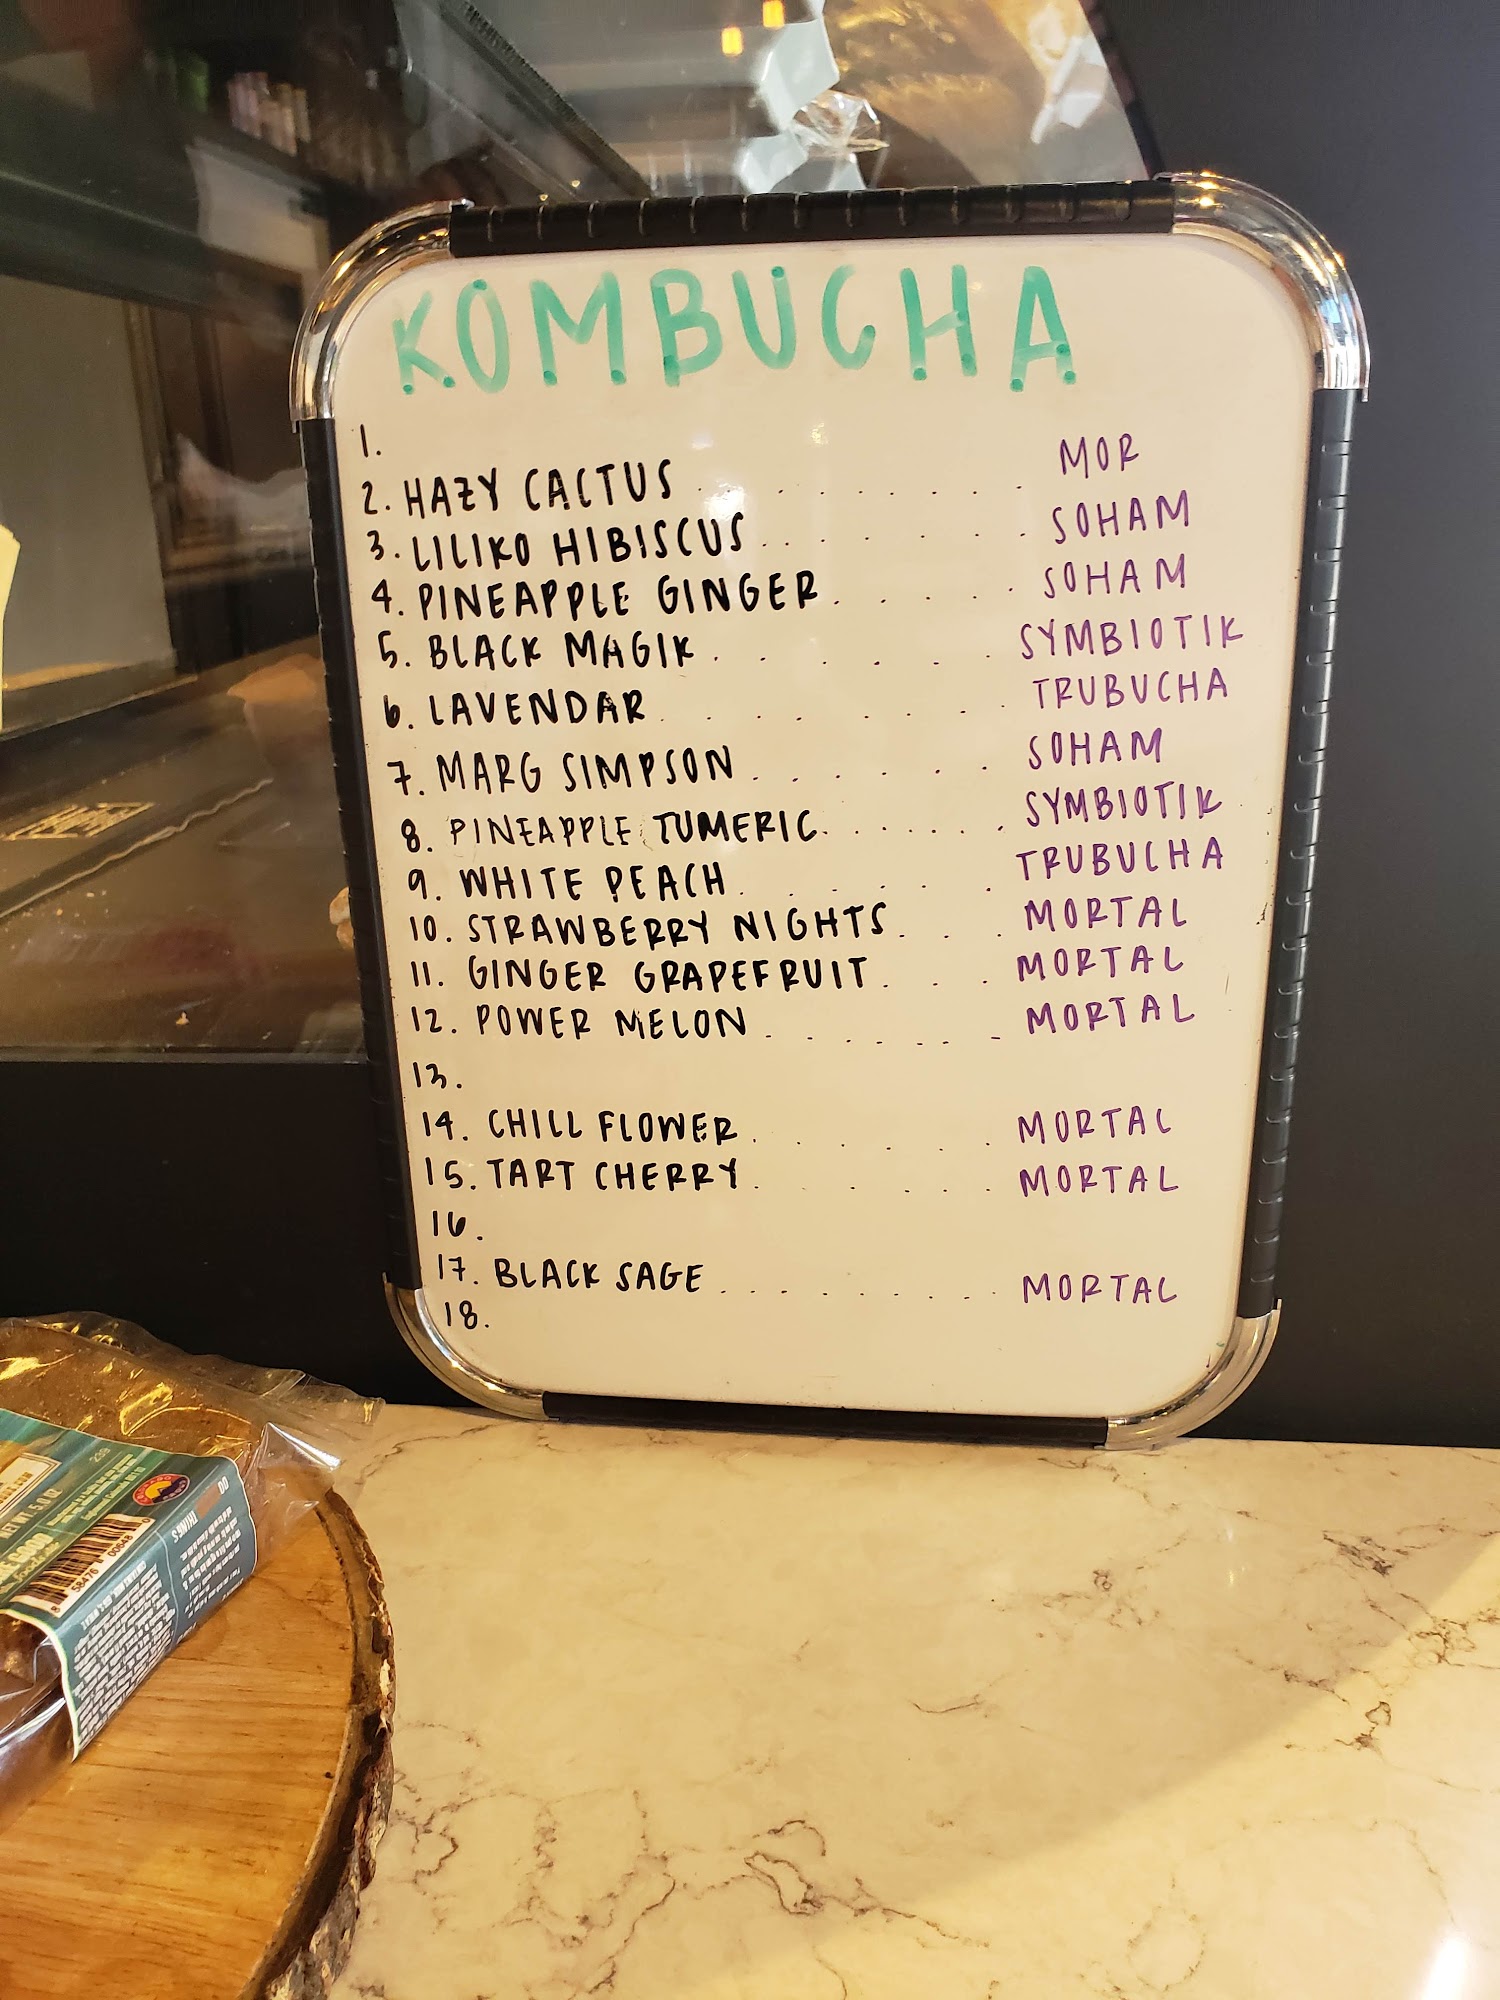 KOMBUCHA
1.
2. HAZY CACTUS . . . . . . . . MOR
3. LILIKO HIBISCUS . . . . . . . . SOHAM
4. PINEAPPLE GINGER . . . . . . SOHAM
5. BLACK MAGIK . . . . . . . SYMBIOTIK
6. LAVENDAR . . . . . . . . TRUBUCHA
7. MARG SIMPSON . . . . . . . SOHAM
8. PINEAPPLE TUMERIC . . . . . . . SYMBIOTIK
9. WHITE PEACH . . . . . . . TRUBUCHA
10. STRAWBERRY NIGHTS . . . MORTAL
11. GINGER GRAPEFRUIT . . . . MORTAL
12. POWER MELON . . . . . . . MORTAL
13.
14. CHILL FLOWER . . . . . . MORTAL
15. TART CHERRY . . . . . . MORTAL
16.
17. BLACK SAGE . . . . . . . . . . MORTAL
18.
239
NET WT 5.0 OZ
GOOD
DO
THINGS